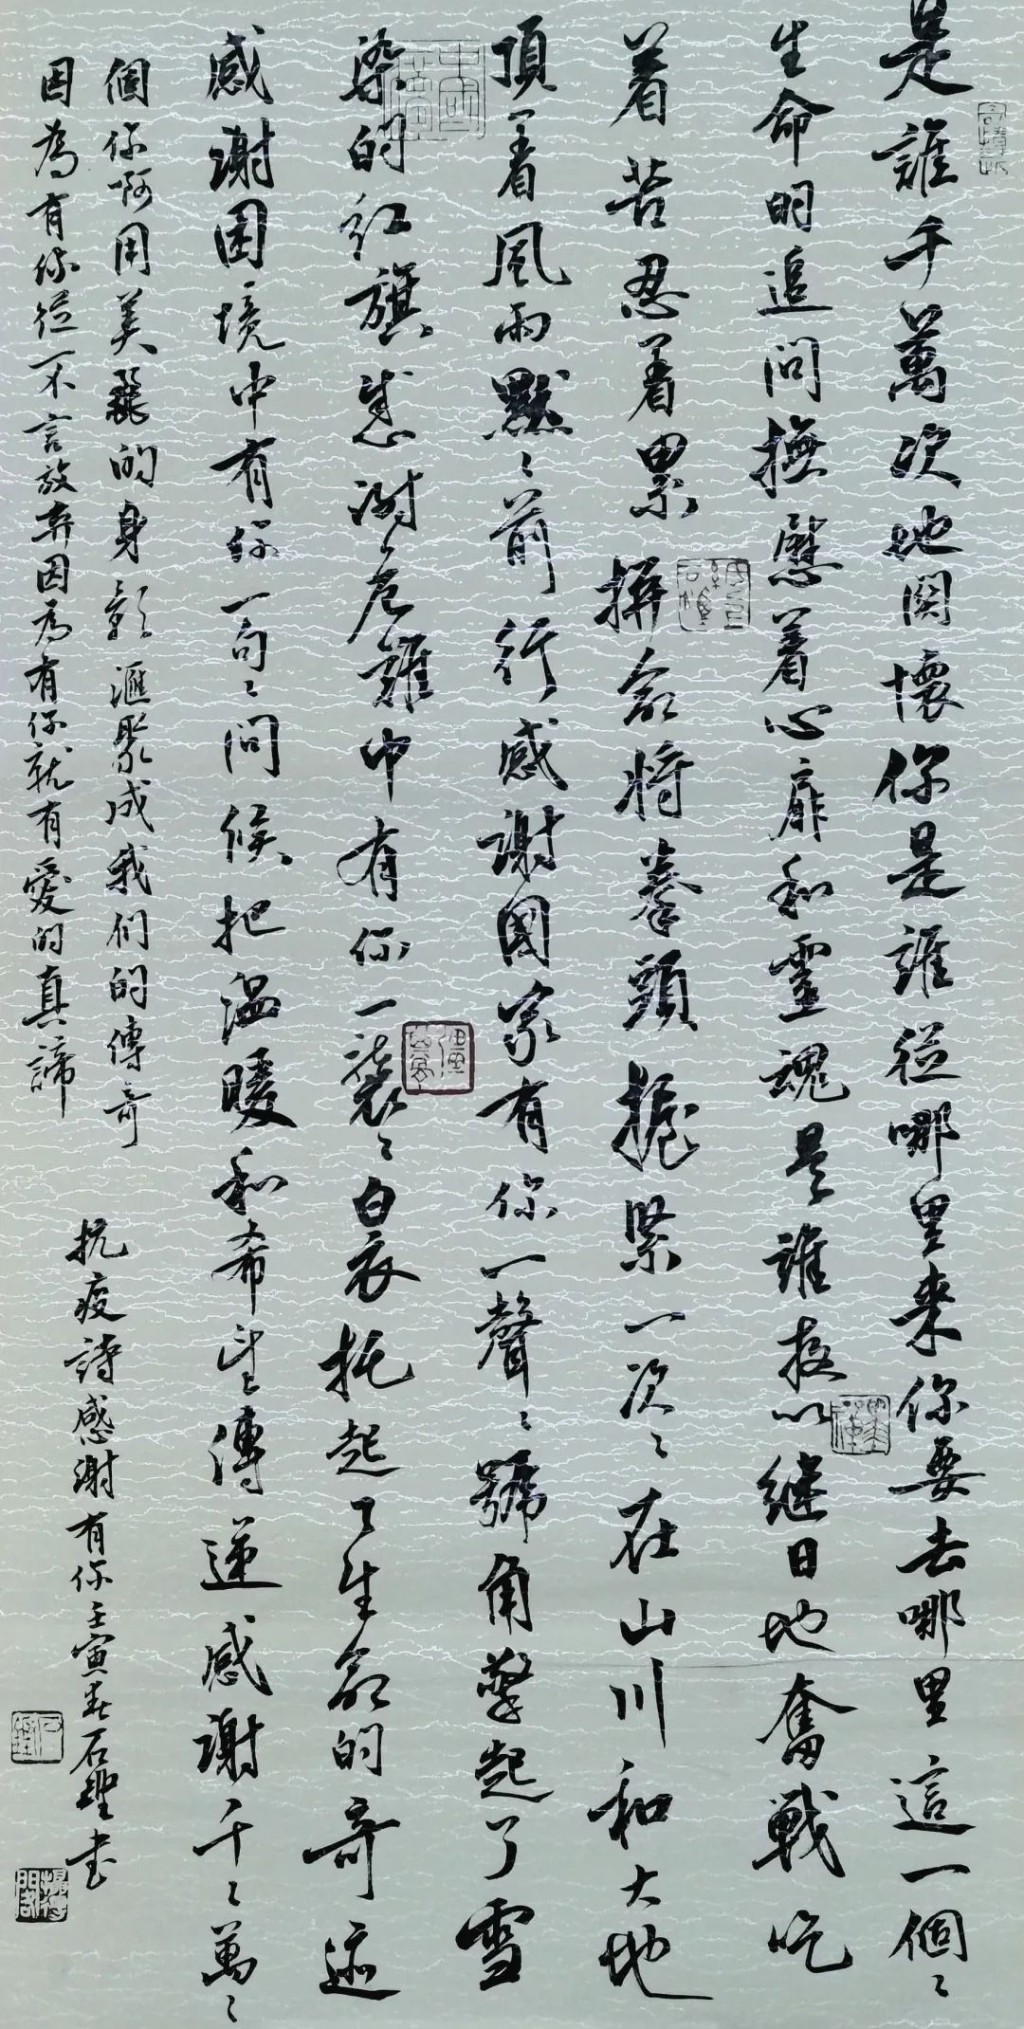 是誰千萬次地関懷你是誰從哪里来你要去哪里這一個〻
生命的追问撫慰着心扉和靈魂是誰夜以继日地奮戰吃
着苦忍着累拼命将拳頭握紧一次〻在山川和大地
頂着風雨默〻前行感谢國家有你一聲〻號角擎起了雪
染的红旗感谢危難中有你一袭〻白衣托起了生命的奇迹
感谢困境中有你一句〻问候把温暖和希望傳递感谢千〻萬〻
個你啊用美麗的身影滙聚成我们的傳奇
因為有你從不言放弃因为有你就有愛的真諦
抗疫詩感谢有你壬寅春石聖书